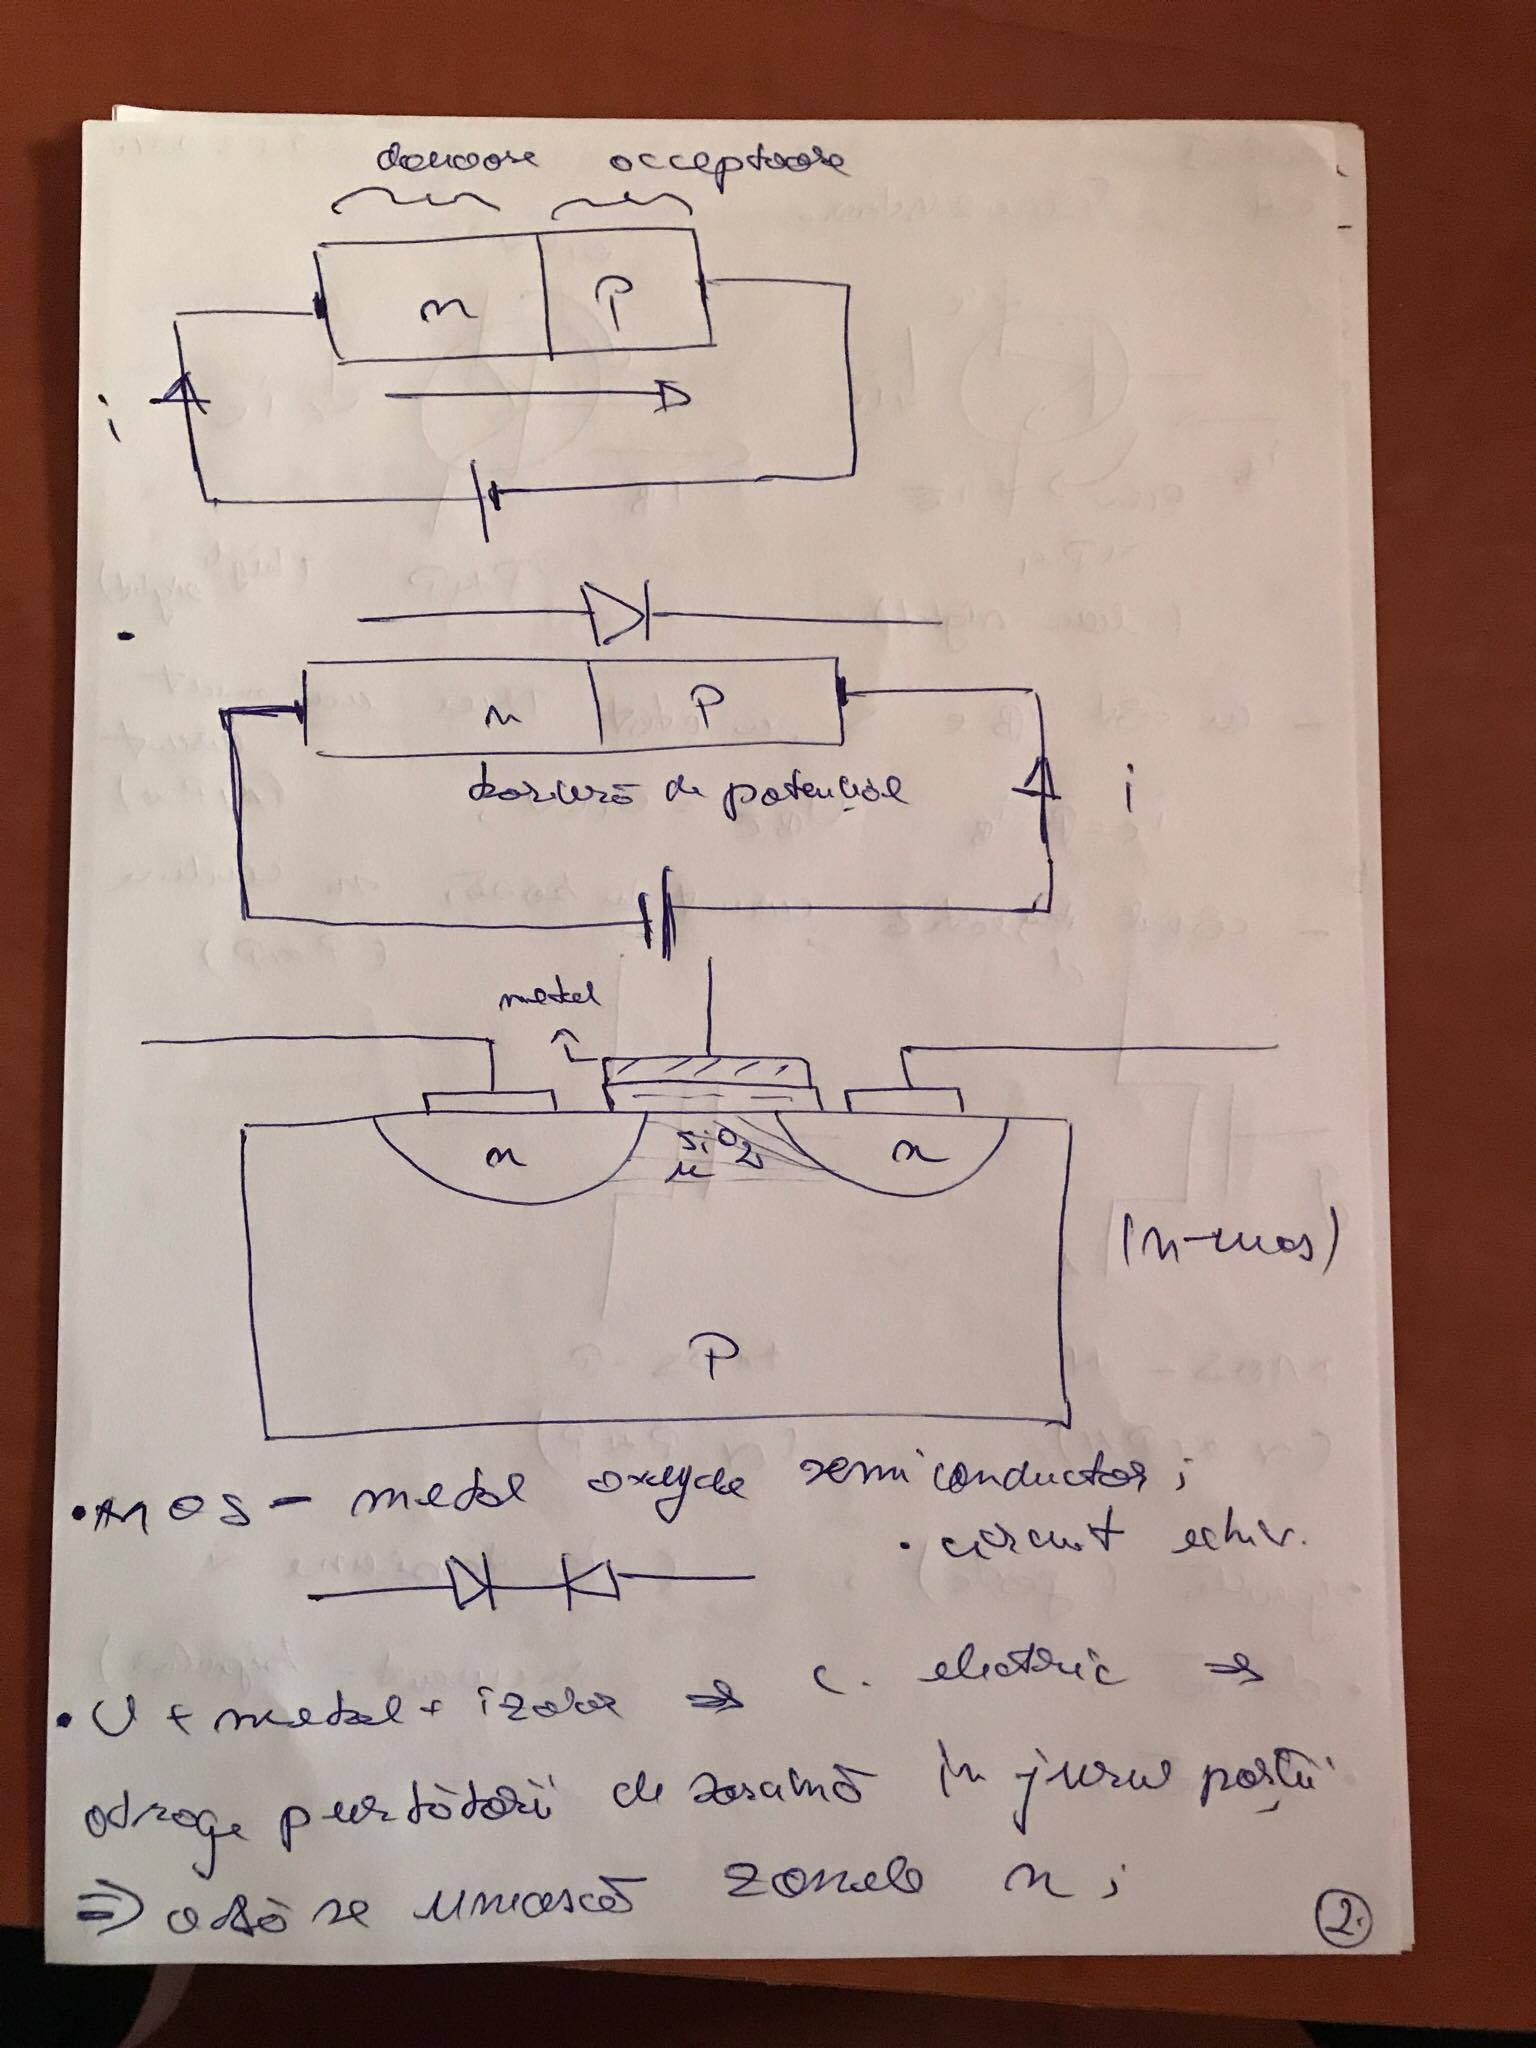 donoare acceptoare
n P
i
n P
barieră de potențial
i
metal
n SiO2 n
n
(n-mos)
P
• MOS - metal oxyde semiconductor;
• circuit echiv.
• U + metal + izolor => c. electric =>
atrage purtătorii de sarcină în jurul porții
=> a să se unească zonele n;
2.